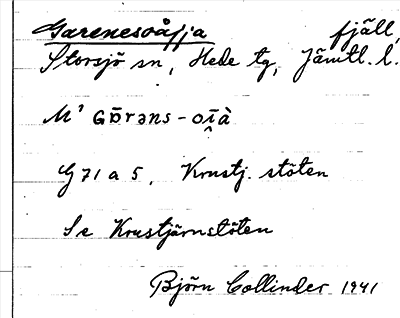 Garenesvåjja fjäll,
Storsjö sn, Hede tg, Jämtl. l.
G 71 a 5, Krustj. stöten
Se Krustjärnstöten
Björn Collinder 1941